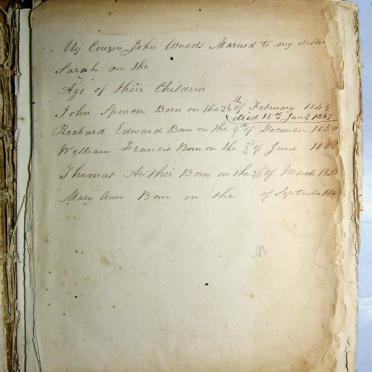 My Couzin John Woods Married to my sister
Sarah on the
Age of their Children
John Spencer Born on the 26th of February
died 15th
Richard Edward Born on the 9th of December
William Francis Born on the of June
Thomas Arther Born on the of March
Mary Ann Born on the of September